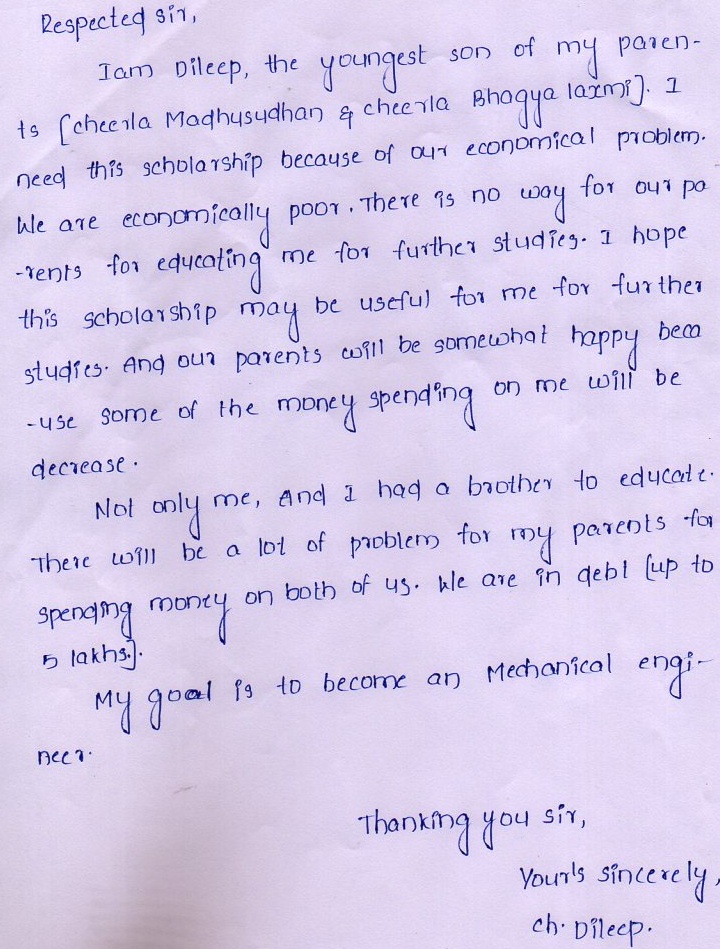 Respected sir,
Iam Dileep, the youngest son of my paren-
ts [cheerla Madhusudhan & cheerla Bhagya laxmi]. I
need this scholarship because of our economical problem.
We are economically poor. There is no way for our pa
-rents for educating me for further studies. I hope
this scholarship may be useful for me for further
studies. And our parents will be somewhat happy beca
-use some of the money spending on me will be
decrease.
Not only me, And I had a brother to educate.
There will be a lot of problem for my parents for
spending money on both of us. We are in debt [up to
5 lakhs.].
My goal is to become an Mechanical engi-
neer.
Thanking you sir,
Your's sincerely,
ch. Dileep.